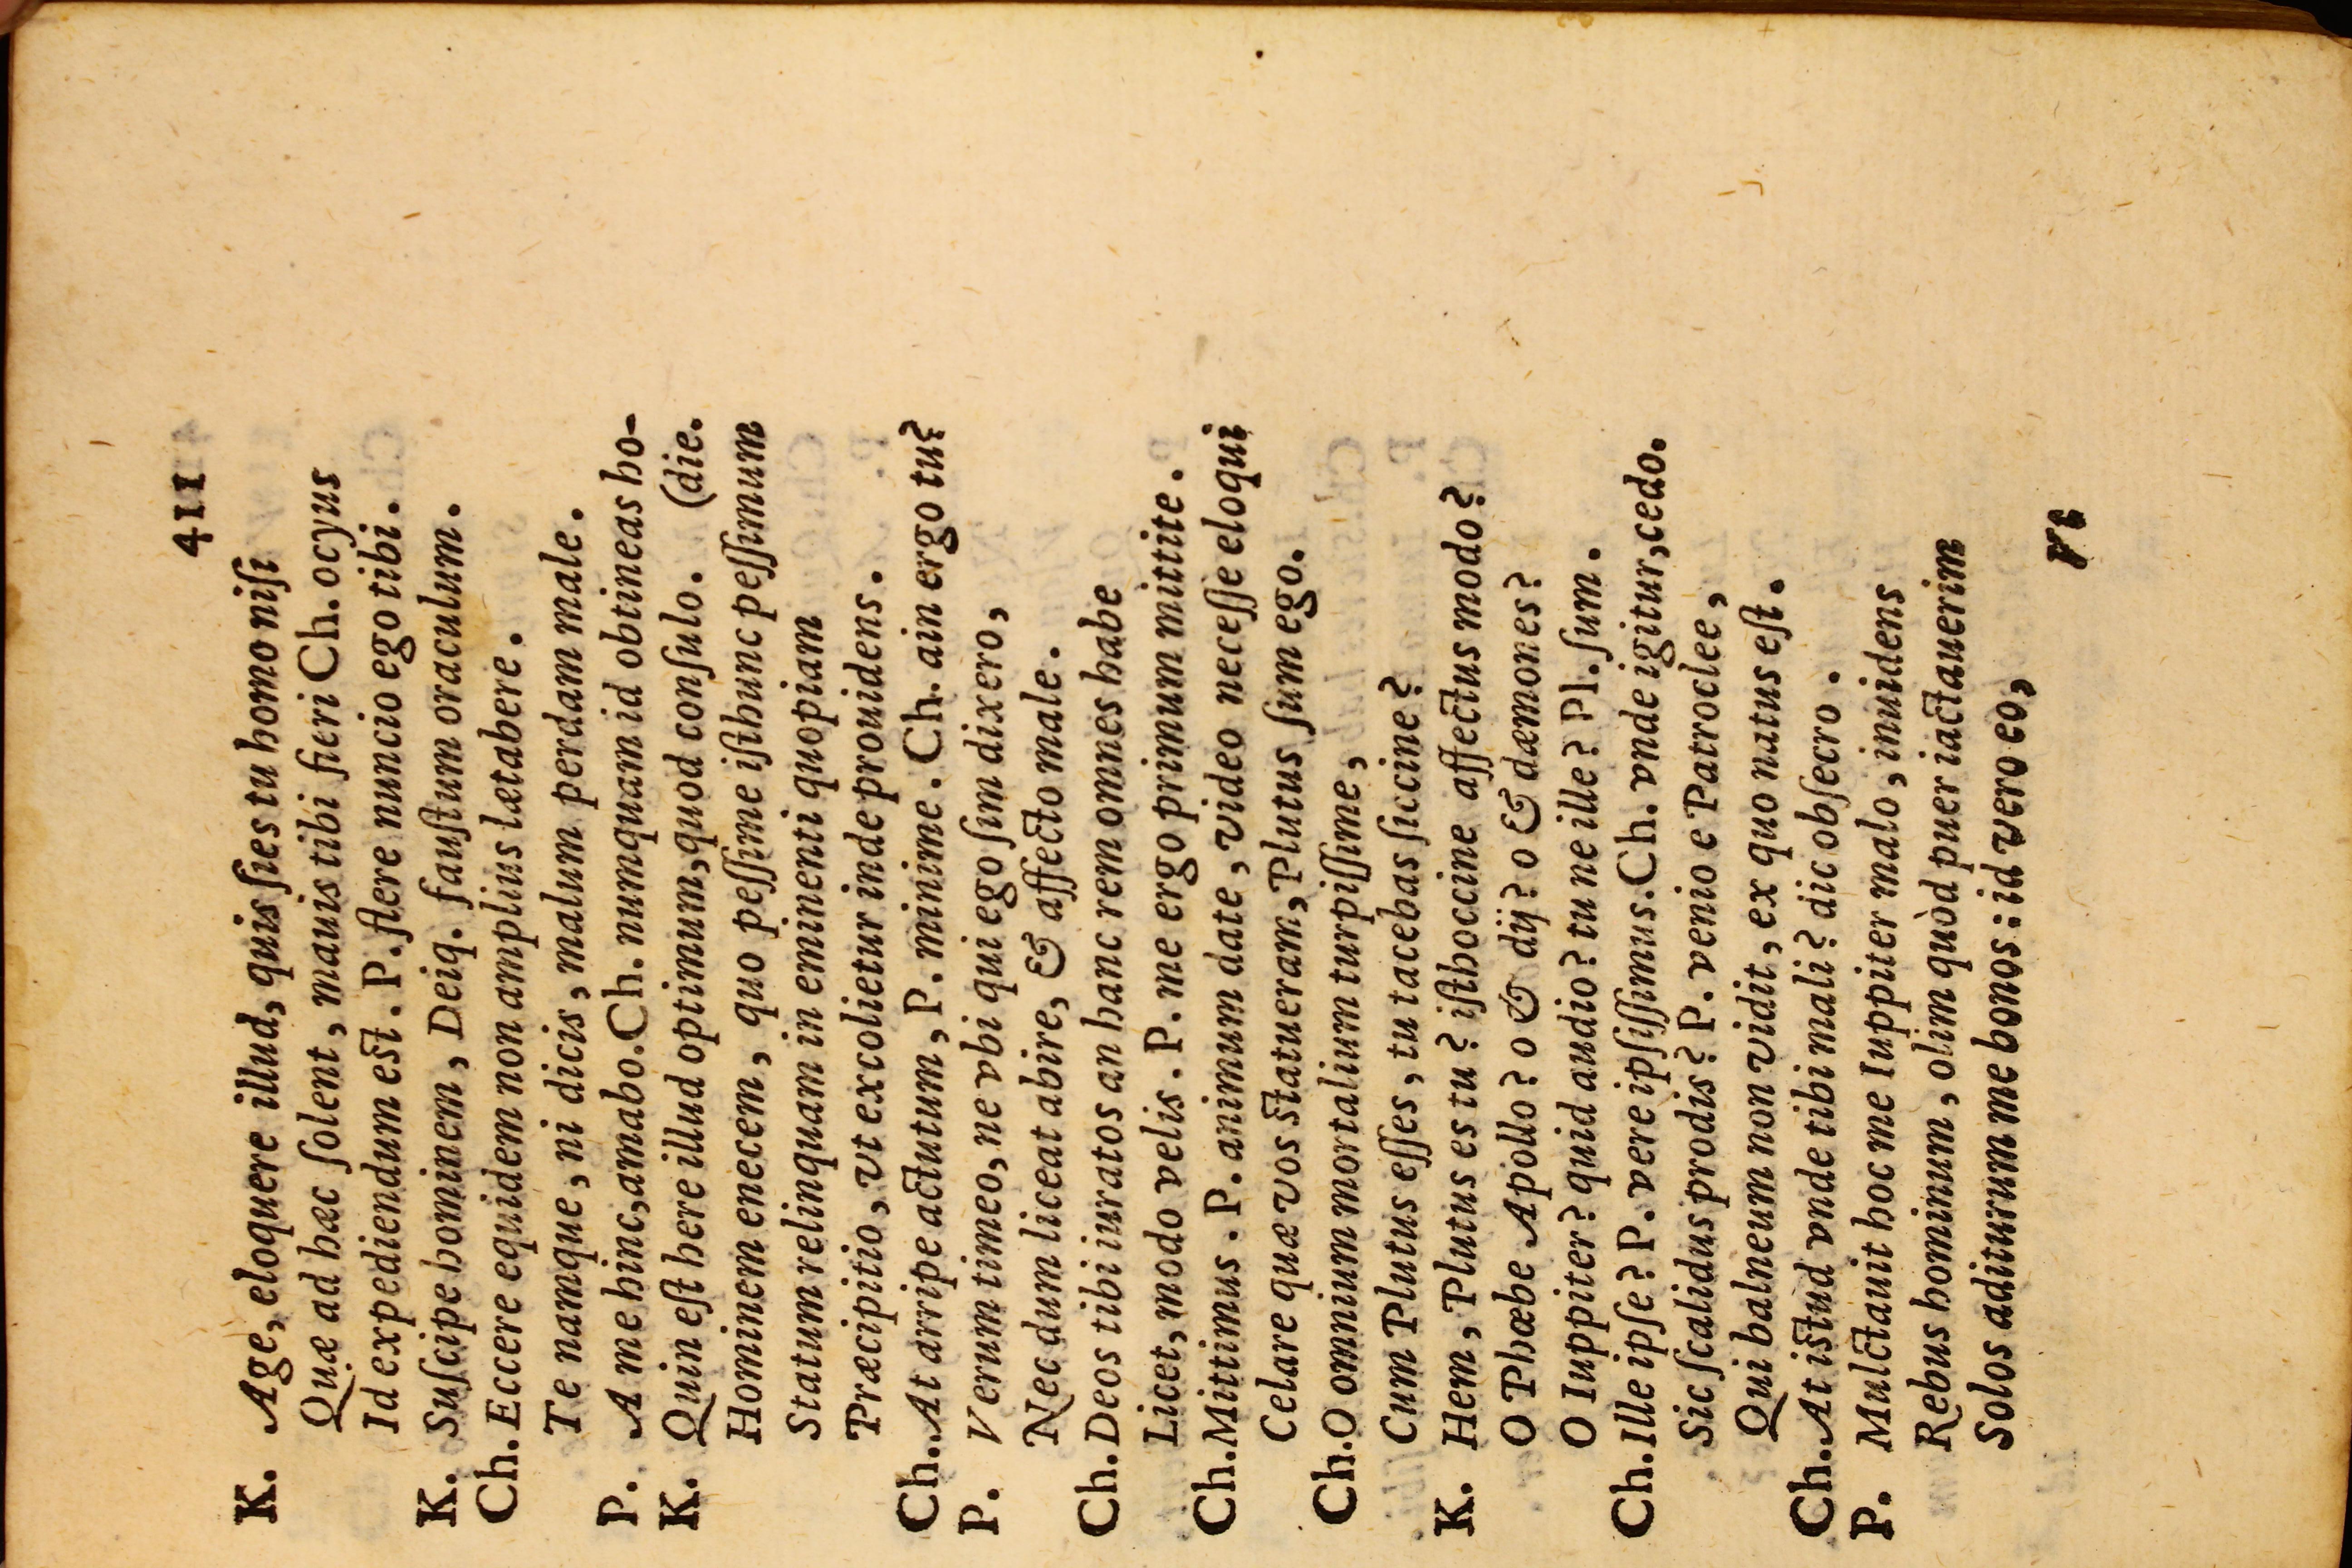 411
K. Age, eloquere illud, quis ſies tu homo niſi
Quæ ad hæc ſolent, mauis tibi fieri Ch. ocyus
Id expediendum eſt. P. flere nuncio ego tibi.
K. Suſcipe hominem, Deiq. fauſtum oraculum.
Ch. Eccere equidem non amplius lætabere.
Te namque, ni dicis, malum perdam male.
P. A me hinc, amabo. Ch. numquam id obtineas ho-
K. Quin eſt here illud optimum, quod conſulo. (die.
Hominem enecem, quo peſſime iſthunc peſſimum
Statum relinquam in eminenti quopiam
Præcipitio, vt excolietur inde prouidens.
Ch. At arripe actutum, P. minime. Ch. ain ergo tu?
P. Verum timeo, ne vbi qui ego ſim dixero,
Nec dum liceat abire, & affecto male.
Ch. Deos tibi iuratos an hanc rem omnes habe
Licet, modo velis. P. me ergo primum mittite.
Ch. Mittimus. P. animum date, video neceſſe eloqui
Celare quæ vos ſtatueram, Plutus ſum ego.
Ch. O omnium mortalium turpiſſime,
Cum Plutus eſſes, tu tacebas ſiccine?
K. Hem, Plutus es tu? iſthoccine affectus modo?
O Phœbe Apollo? o & dij? o & dæmones?
O Iuppiter? quid audio? tu ne ille? Pl. ſum.
Ch. Ille ipſe? P. vere ipſiſſimus. Ch. vnde igitur, cedo.
Sic ſcalidus prodis? P. venio e Patroclee,
Qui balneum non vidit, ex quo natus eſt.
Ch. At iſtud vnde tibi mali? dic obſecro.
P. Mulctauit hoc me Iuppiter malo, inuidens
Rebus hominum, olim quòd puer iactauerim
Solos aditurum me bonos: id vero eo,
Vt